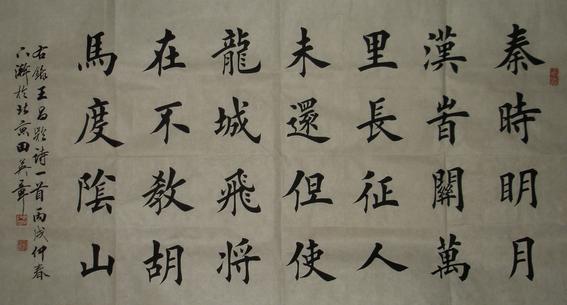 秦時明月
漢峕關萬
里長征人
未還但使
龍城飛将
在不教胡
馬度陰山
右錄王昌齡诗一首丙戌仲春
六游於北京田英章